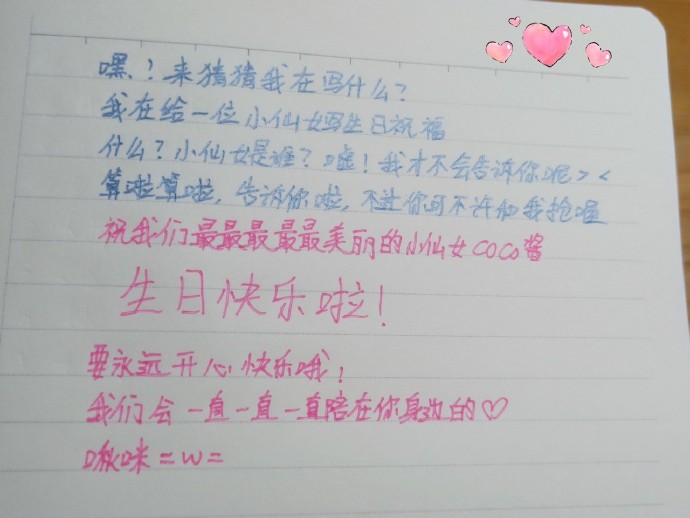 嘿！来猜猜我在写什么？
我在给一位小仙女写生日祝福
什么？小仙女是谁？嘘！我才不会告诉你呢><
算啦算啦，告诉你啦，不过你可不许和我抢喔
祝我们最最最最最美丽的小仙女COCO酱
生日快乐啦！
要永远开心快乐哦！
我们会一直一直一直陪在你身边的♡
啾咪=w=